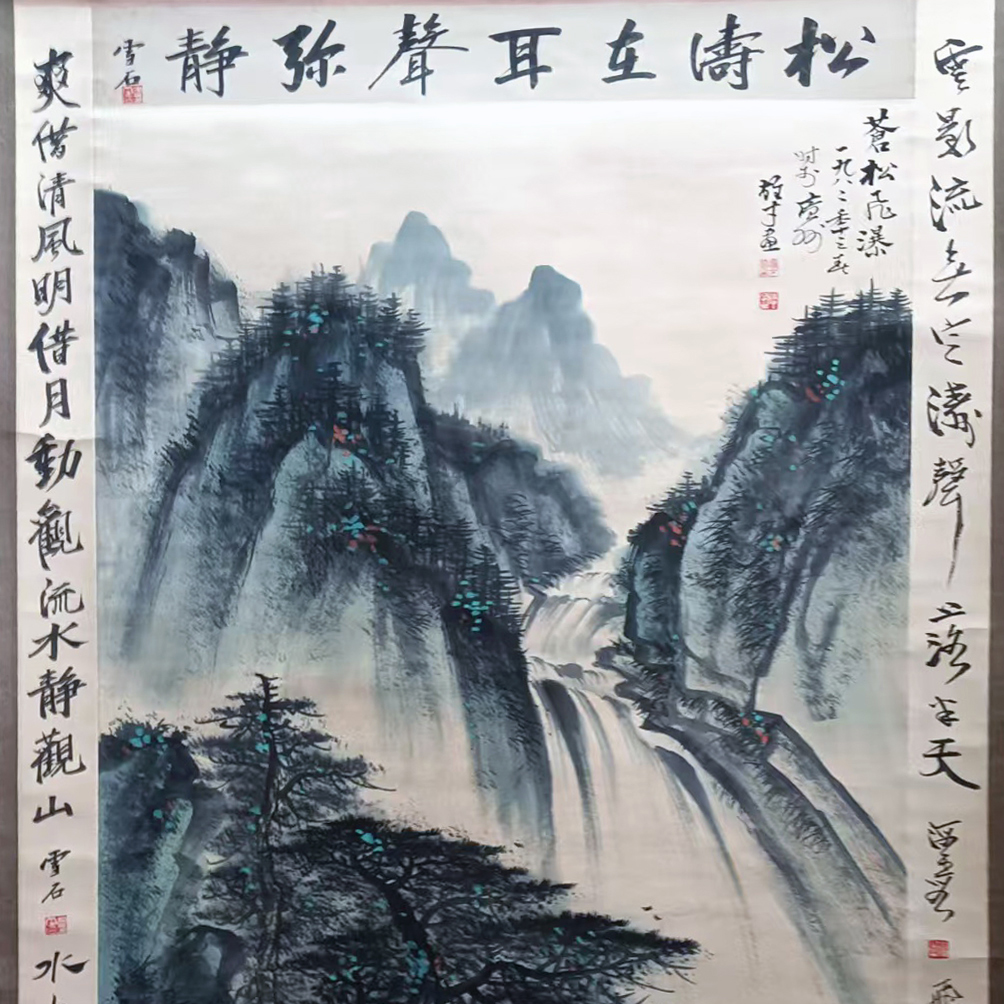 松濤在耳聲弥静
雪石
蒼松飛瀑
一九八二年十二月
时於廣州
雄才畫
雲影流無定濤聲
上落半天
爽借清風明借月動觀流水静觀山
雪石
水